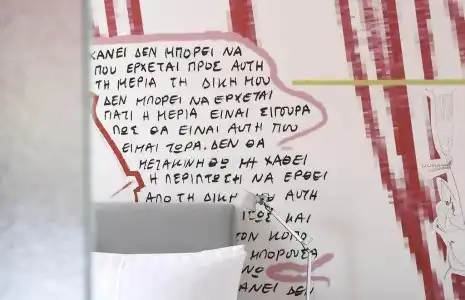 ΚΑΝΕΙ ΔΕΝ ΜΠΟΡΕΙ ΝΑ
ΠΟΥ ΕΡΧΕΤΑΙ ΠΡΟΣ ΑΥΤΗ
ΤΗ ΜΕΡΙΑ ΤΗ ΔΙΚΗ ΜΟΥ
ΔΕΝ ΜΠΟΡΕΙ ΝΑ ΕΡΧΕΤΑΙ
ΓΙΑΤΙ Η ΜΕΡΙΑ ΕΙΝΑΙ ΣΙΓΟΥΡΑ
ΠΩΣ ΘΑ ΕΙΝΑΙ ΑΥΤΗ ΠΟΥ
ΕΙΜΑΙ ΤΩΡΑ. ΔΕΝ ΘΑ
ΜΕΤΑΚΙΝΗΘΩ ΜΗ ΧΑΘΕΙ
Η ΠΕΡΙΠΤΩΣΗ ΝΑ ΕΡΘΕΙ
ΑΠΟ ΤΗ ΔΙΚΗ ΜΟΥ ΑΥΤΗ
ΚΑΙ
ΤΟΝ ΚΟΠΟ
ΜΠΟΡΟΥΣΑ
ΑΝΕΙ ΔΕΝ